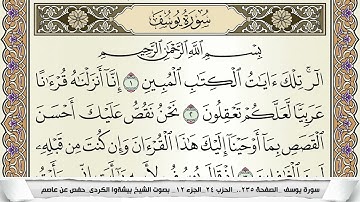 سُورَةُ يُوسُفَ
بِسْمِ اللَّهِ الرَّحْمَٰنِ الرَّحِيمِ
الٓر ۚ تِلْكَ ءَايَٰتُ ٱلْكِتَٰبِ ٱلْمُبِينِ ١ إِنَّآ أَنزَلْنَٰهُ قُرْءَٰنًا
عَرَبِيًّا لَّعَلَّكُمْ تَعْقِلُونَ ٢ نَحْنُ نَقُصُّ عَلَيْكَ أَحْسَنَ
ٱلْقَصَصِ بِمَآ أَوْحَيْنَآ إِلَيْكَ هَٰذَا ٱلْقُرْءَانَ وَإِن كُنتَ مِن قَبْلِهِۦ
سورة يوسف _ الصفحة ٢٣٥.. الحزب ٢٤_ الجزء ١٢_ بصوت الشيخ بيشةوا الكردى_ حفص عن عاصم